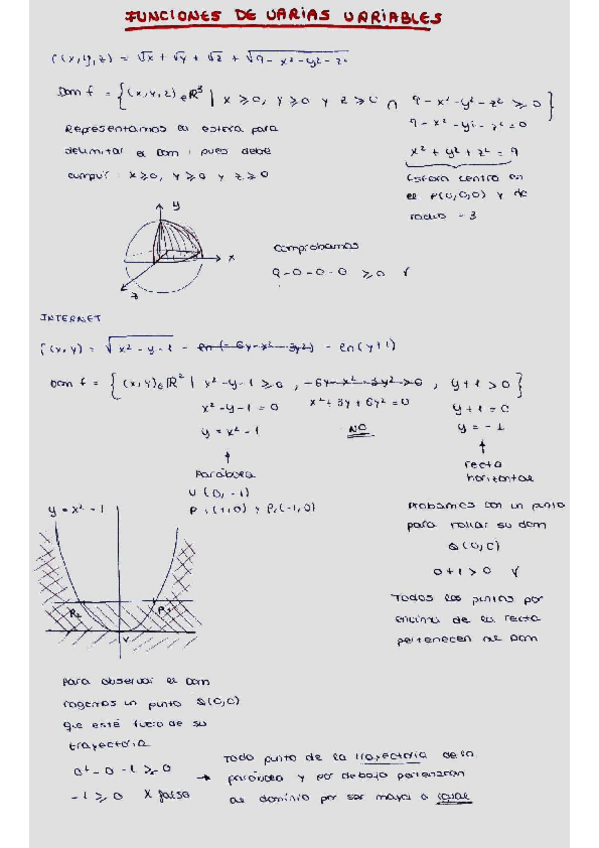 FUNCIONES DE VARIAS VARIABLES
f(x,y,z) = √x + √y + √z + √9-x²-y²-z²
Dom f = {(x,y,z) ∈ R³ | x ≥ 0, y ≥ 0 y z ≥ 0 ∩ 9-x²-y²-z² ≥ 0}
9-x²-y²-z² = 0
x² + y² + z² = 9
Esfera centro en
el P(0,0,0) y de
radio = 3
Representamos la esfera para
delimitar el Dom, pues debe
cumplir: x≥0, y≥0 y z≥0
y
x
z
Comprobamos
9-0-0-0 ≥0 √
INTERNET
f(x,y) = √x²-y-1 - ln(-6y-x²-3y²) - ln(y+1)
Dom f = {(x,y)∈R² | x²-y-1 ≥ 0, -6y-x²-3y²>0, y+1 > 0}
x²-y-1 = 0
y = x²-1
↑
Parábola
V(0,-1)
P₁(1,0) y P₂(-1,0)
x²+3y+6y²=0
NO
y+1 = 0
y = -1
↑
recta
horizontal
Probamos con un punto
para hallar su dom
Q(0,0)
0+1 > 0 √
Todos los puntos por
encima de la recta
pertenecen al Dom
y = x² - 1
P₂
P₁
V
Para observar el Dom
cogemos un punto Q(0,0)
que esté fuera de su
trayectoria
0²-0-1 ≥ 0
-1 ≥ 0 X falso
→ Todo punto de la trayectoria de la
parábola y por debajo pertenecen
al dominio por ser mayor o igual